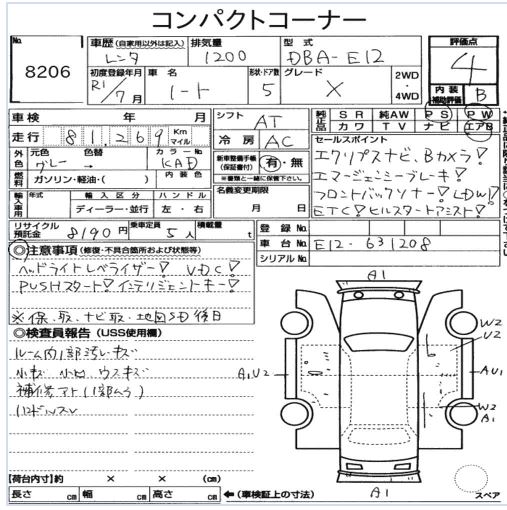 コンパクトコーナー
No. 8206
車歴 (自家用以外は記入) レンタ
排気量 1200
型式 DBA-E12
評価点 4
初度登録年月 R1/7月
車名 ノート
形状・ドア数 5
グレード X
2WD・4WD
内装補助評価 B
車検 年 月
シフト AT
純正品 SR 純AW PS PW
カワ TV ナビ エアB
走行 81,269 Km マイル
冷房 AC
セールスポイント
エクリプスナビ、Bカメラ!
エマージェンシーブレーキ!
フロントバックソナー! LDW!
ETC! ヒルスタートアシスト!
外色 元色 色替 カラーNo.
グレー → KAD
新車整備手帳(保証書付) 有・無
※書類と一緒に保管下さい。
燃料 ガソリン・軽油・( ) 内装色
名義変更期限
月 日
輸入車用 年式 輸入区分 ハンドル
ディーラー・並行 左・右
リサイクル預託金 8190円 乗車定員 5人 積載量 t
登録No.
車台No. E12-631208
シリアルNo.
◎注意事項 (修復・不具合箇所および状態等)
ヘッドライトレベライザー! VDC!
PUSHスタート! インテリジェントキー!
※保、取、ナビ取、地図SD後日
◎検査員報告 (USS使用欄)
ルーム内1部汚レキズ
小キズ 小凹 ウスキズ
補修アト(1部ムラ)
ハンドルスレ
A1
W2
U2
A1U2
AU1
W2
A1
A1
スペア
【荷台内寸】約 × × (cm)
長さ cm 幅 cm 高さ cm ← (車検証上の寸法)